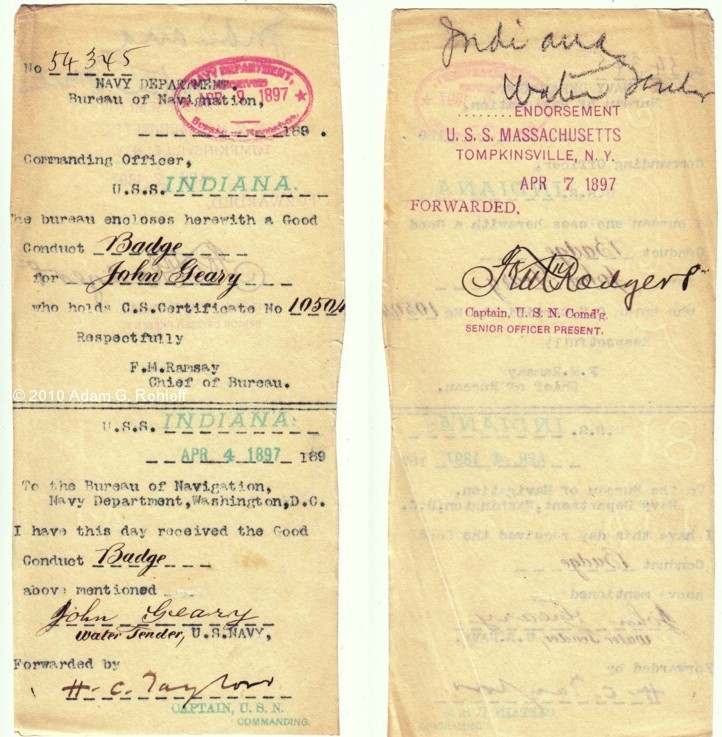 No 54345
NAVY DEPARTMENT.
Bureau of Navigation,
NAVY DEPARTMENT,
RECEIVED
APR 9 1897
189 .
Commanding Officer,
U.S.S. INDIANA.
The bureau encloses herewith a Good
Conduct Badge
for John Geary
who holds C.S.Certificate No 10504
Respectfully
F.M.Ramsay
Chief of Bureau.
© 2010 Adam G. Rohloff
U.S.S. INDIANA.
APR 4 1897 189
To the Bureau of Navigation,
Navy Department,Washington,D.C.
I have this day received the Good
Conduct Badge
above mentioned
John Geary
Water Tender, U.S.NAVY,
Forwarded by
H.C. Taylor
CAPTAIN, U. S. N.
COMMANDING.
Indiana
Water Tender
........ENDORSEMENT
U. S. S. MASSACHUSETTS
TOMPKINSVILLE, N. Y.
APR 7 1897
FORWARDED.
Rodgers
Captain, U. S. N. Comd'g.
SENIOR OFFICER PRESENT.